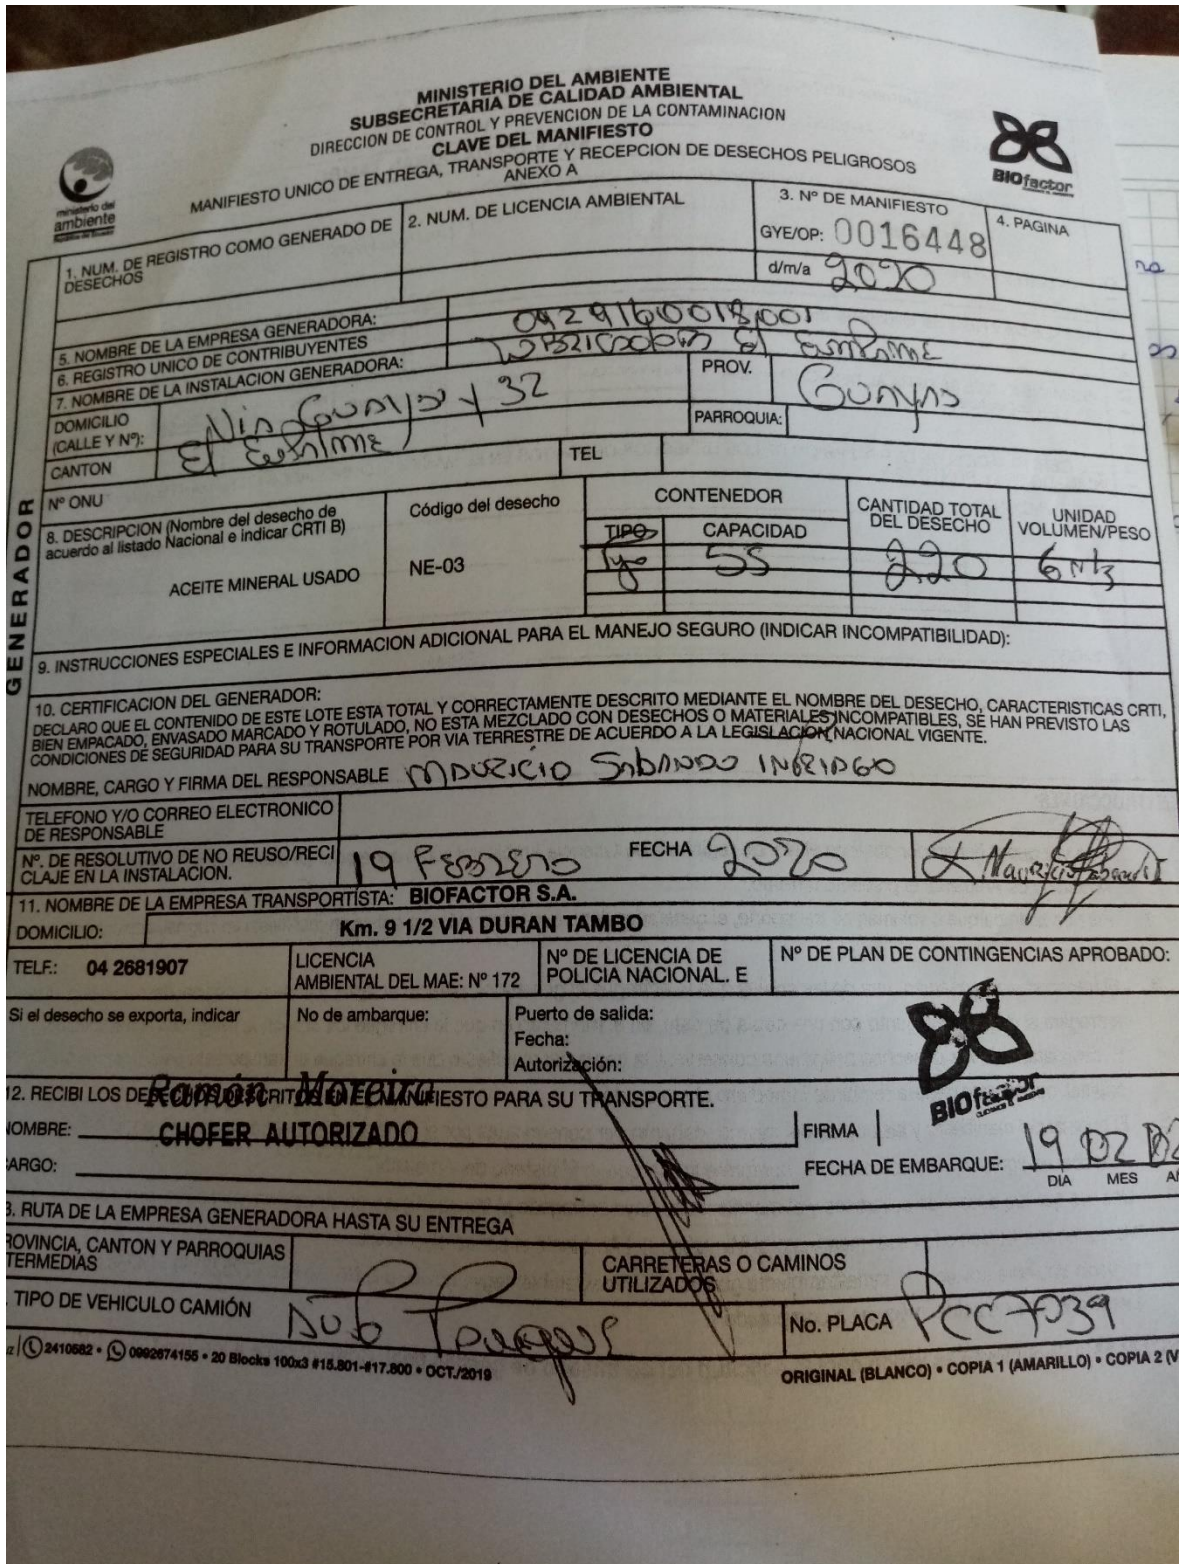 MINISTERIO DEL AMBIENTE
SUBSECRETARIA DE CALIDAD AMBIENTAL
DIRECCION DE CONTROL Y PREVENCION DE LA CONTAMINACION
CLAVE DEL MANIFIESTO
MANIFIESTO UNICO DE ENTREGA, TRANSPORTE Y RECEPCION DE DESECHOS PELIGROSOS
ANEXO A
ministerio del ambiente
BIOfactor
1. NUM. DE REGISTRO COMO GENERADO DE DESECHOS
2. NUM. DE LICENCIA AMBIENTAL
3. Nº DE MANIFIESTO
GYE/OP: 0016448
d/m/a 2020
4. PAGINA
GENERADOR
5. NOMBRE DE LA EMPRESA GENERADORA:
6. REGISTRO UNICO DE CONTRIBUYENTES
0929160018001
7. NOMBRE DE LA INSTALACION GENERADORA:
El Empalme
DOMICILIO (CALLE Y Nº):
Via Guayas y 32
PROV. Guayas
PARROQUIA:
CANTON El Empalme
TEL
Nº ONU
8. DESCRIPCION (Nombre del desecho de acuerdo al listado Nacional e indicar CRTI B)
ACEITE MINERAL USADO
Código del desecho
NE-03
CONTENEDOR
TIPO CAPACIDAD
55
CANTIDAD TOTAL DEL DESECHO
220
UNIDAD VOLUMEN/PESO
9. INSTRUCCIONES ESPECIALES E INFORMACION ADICIONAL PARA EL MANEJO SEGURO (INDICAR INCOMPATIBILIDAD):
10. CERTIFICACION DEL GENERADOR:
DECLARO QUE EL CONTENIDO DE ESTE LOTE ESTA TOTAL Y CORRECTAMENTE DESCRITO MEDIANTE EL NOMBRE DEL DESECHO, CARACTERISTICAS CRTI,
BIEN EMPACADO, ENVASADO MARCADO Y ROTULADO, NO ESTA MEZCLADO CON DESECHOS O MATERIALES INCOMPATIBLES, SE HAN PREVISTO LAS
CONDICIONES DE SEGURIDAD PARA SU TRANSPORTE POR VIA TERRESTRE DE ACUERDO A LA LEGISLACION NACIONAL VIGENTE.
NOMBRE, CARGO Y FIRMA DEL RESPONSABLE MAURICIO Sabando INTRIAGO
TELEFONO Y/O CORREO ELECTRONICO DE RESPONSABLE
Nº. DE RESOLUTIVO DE NO REUSO/RECI CLAJE EN LA INSTALACION.
19 FEBRERO FECHA 2020
11. NOMBRE DE LA EMPRESA TRANSPORTISTA: BIOFACTOR S.A.
DOMICILIO: Km. 9 1/2 VIA DURAN TAMBO
TELF.: 04 2681907
LICENCIA AMBIENTAL DEL MAE: Nº 172
Nº DE LICENCIA DE POLICIA NACIONAL. E
Nº DE PLAN DE CONTINGENCIAS APROBADO:
Si el desecho se exporta, indicar
No de ambarque:
Puerto de salida:
Fecha:
Autorización:
BIOfactor
12. RECIBI LOS DESECHOS DESCRITOS EN EL MANIFIESTO PARA SU TRANSPORTE.
Ramón Moreira
NOMBRE: CHOFER AUTORIZADO
FIRMA
CARGO:
FECHA DE EMBARQUE: 19 02
DIA MES
3. RUTA DE LA EMPRESA GENERADORA HASTA SU ENTREGA
PROVINCIA, CANTON Y PARROQUIAS INTERMEDIAS
CARRETERAS O CAMINOS UTILIZADOS
TIPO DE VEHICULO CAMIÓN
No. PLACA PCC7039
2410582 • 0992674155 • 20 Blocks 100x3 #15.801-#17.800 • OCT./2019
ORIGINAL (BLANCO) • COPIA 1 (AMARILLO) • COPIA 2 (V